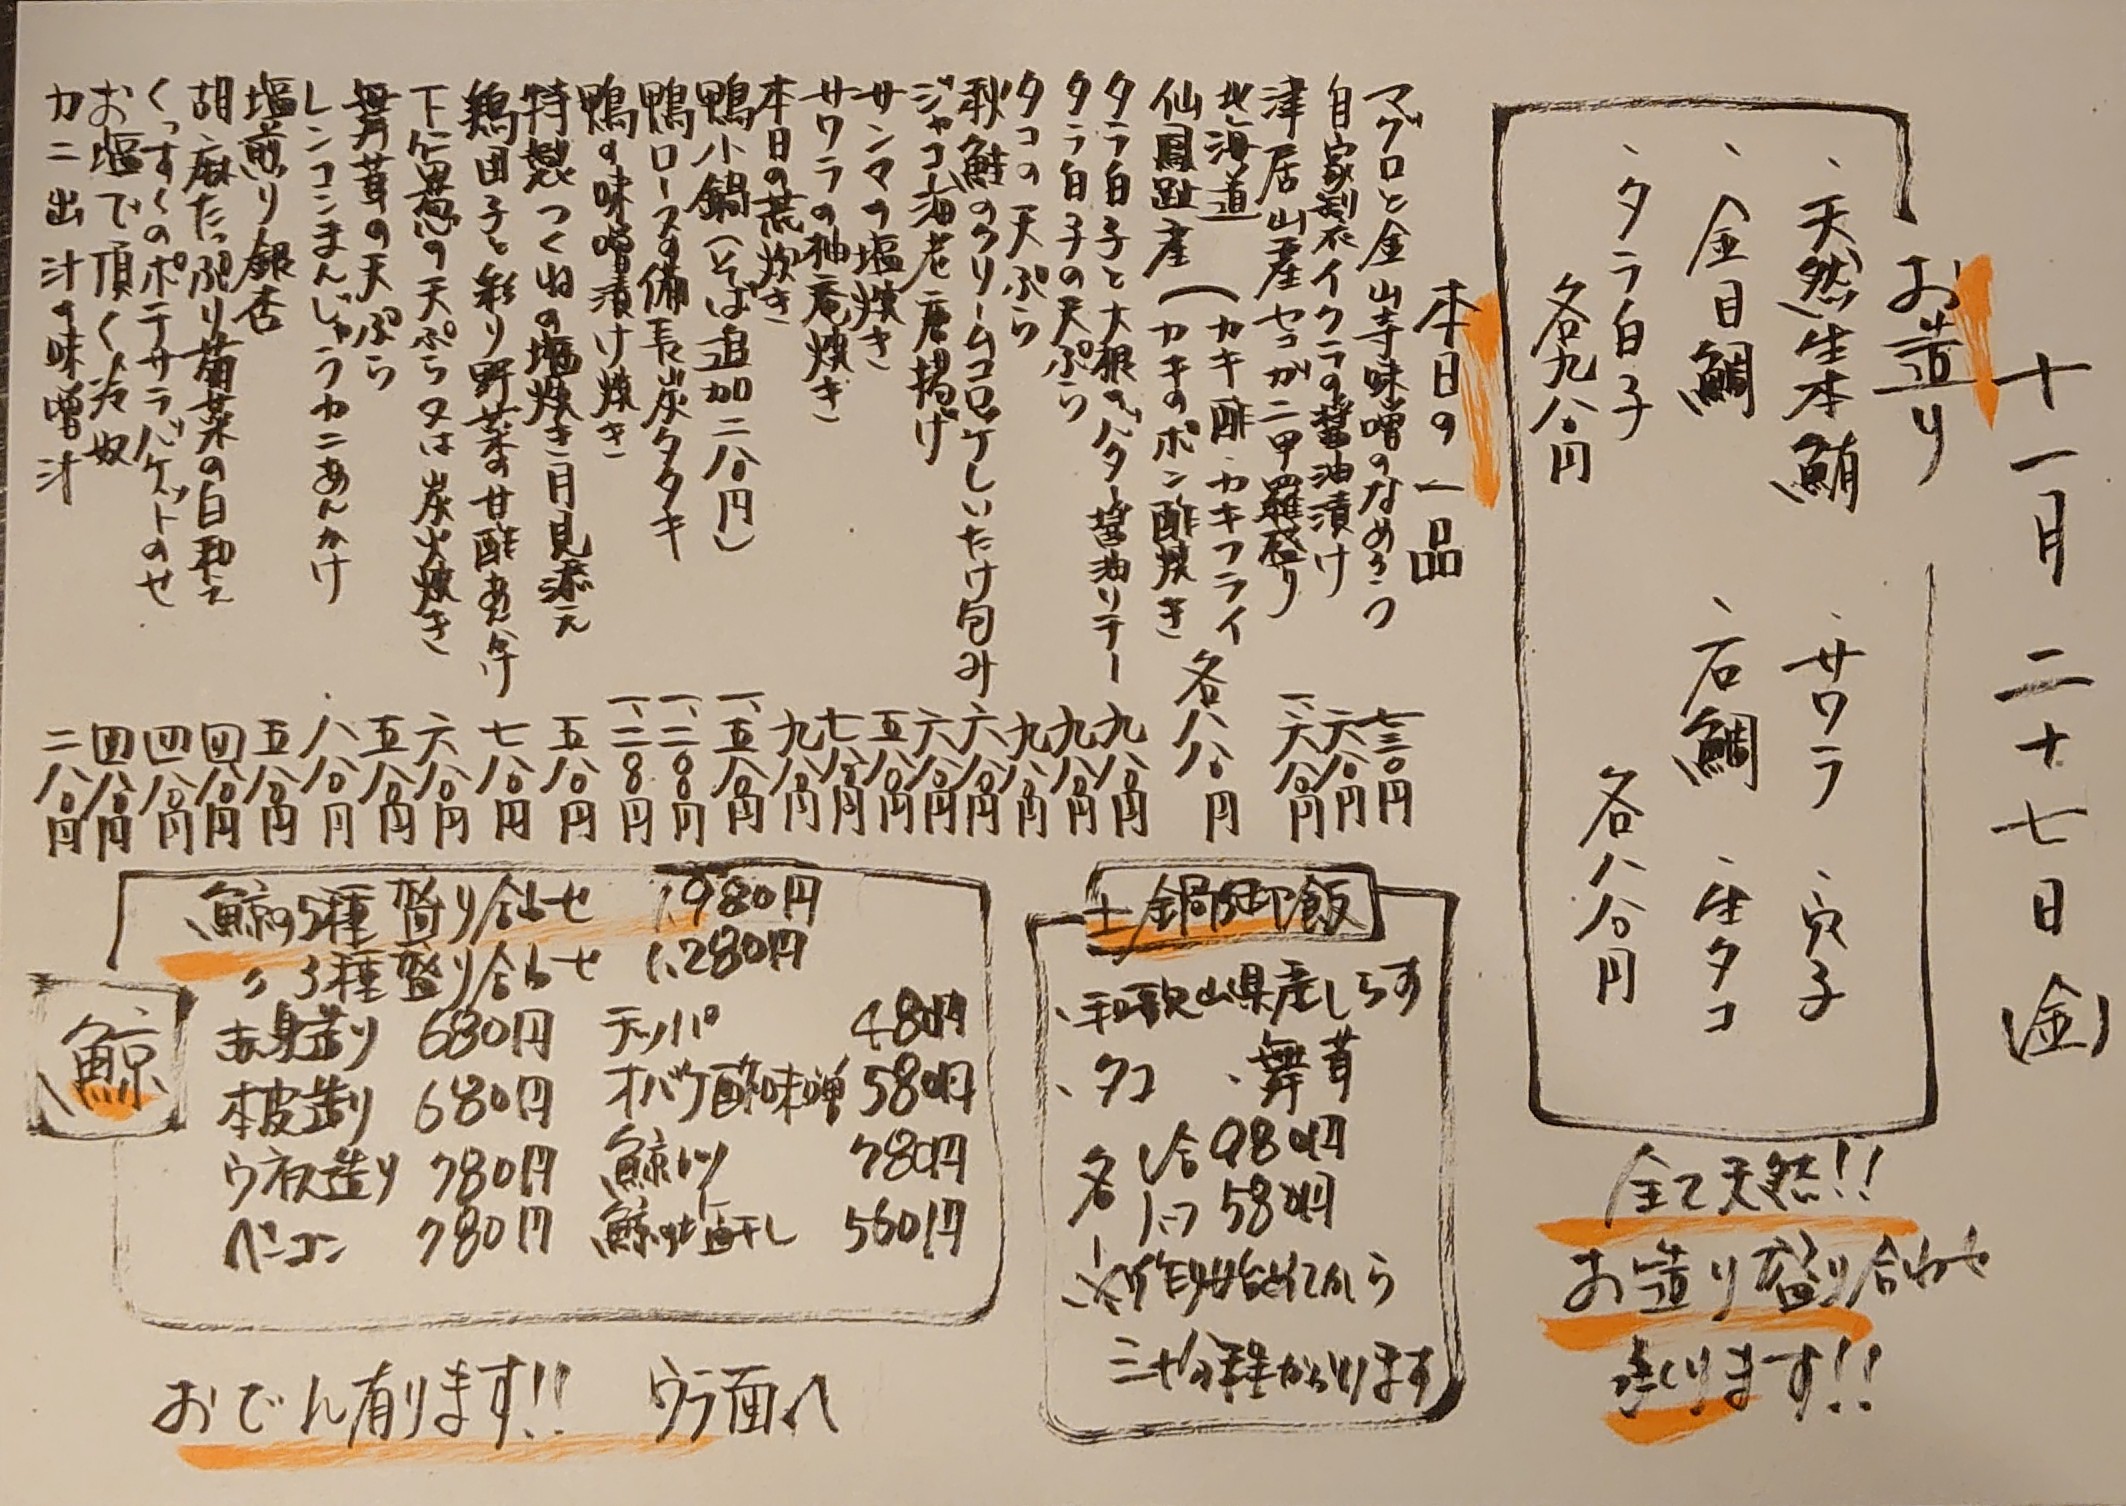 十一月二十七日(金)
お造り
、天然生本鮪 、サワラ 、穴子
、金目鯛 、石鯛 、生タコ
、タラ白子
各九八〇円 各八八〇円
全て天然!!
お造り盛り合わせ
承ります!!
本日の一品
マグロと金山寺味噌のなめろう 七三〇円
自家製イクラの醤油漬け 六八〇円
津居山産セコガニ甲羅盛り 一、六八〇円
北海道
仙鳳趾産(カキ酢・カキフライ
カキのポン酢焼き 各八八〇円
タラ白子と大根のバター醤油ソテー 九八〇円
タラ白子の天ぷら 九八〇円
タコの天ぷら 九八〇円
秋鮭のクリームコロッケしいたけ包み 六八〇円
ジャコ海老唐揚げ 六八〇円
サンマの塩焼き 五八〇円
サワラの柚庵焼き 七八〇円
本日の荒炊き 九八〇円
鴨小鍋(そば追加二八〇円) 一、五八〇円
鴨ロースの備長炭タタキ 一、二〇〇円
鴨の味噌漬け焼き 一、二〇〇円
特製つくねの塩焼き月見添え 五八〇円
鶏団子と彩り野菜の甘酢あんかけ 七八〇円
下仁田葱の天ぷら又は炭火焼き 六八〇円
舞茸の天ぷら 五八〇円
レンコンまんじゅうカニあんかけ 八八〇円
塩煎り銀杏 五八〇円
胡麻たっぷり菊菜の白和え 四八〇円
くっすくのポテサラバケットのせ 四八〇円
お塩で頂く冷奴 四八〇円
カニ出汁の味噌汁 二八〇円
土鍋御飯
、和歌山県産しらす
、タコ 、舞茸
各 一合 980円
ハーフ 580円
※作り始めてから
三十分程かかります
鯨
鯨の5種盛り合わせ 1,980円
〃 3種盛り合わせ 1,280円
赤身造り 680円 テッパ 480円
本皮造り 680円 オバケ酢味噌 580円
ウネス造り 780円 鯨カツ 780円
ベーコン 780円 鯨の塩干し 560円
おでん有ります!! ウラ面へ